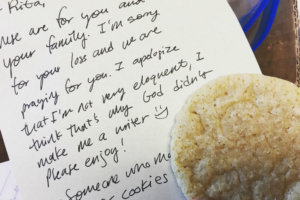 Rita,
These are for you and
your family. I'm sorry
for your loss and we are
praying for you. I apologize
that I'm not very eloquent, I
think that's why God didn't
make me a writer
Please enjoy!
Someone who
cookies